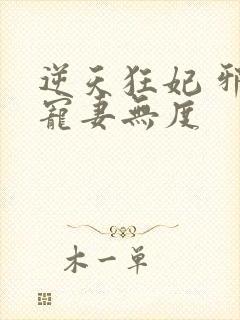 逆天狂妃 邪
寵妻無度
木一单